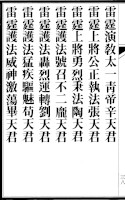 雷霆演教太一青帝辛天君
雷霆上將公正執法張天君
雷霆上將勇烈秉法陶天君
雷霆護法號召不二龐天君
雷霆護法轟烈運轉劉天君
雷霆護法猛疾驅魅苟天君
雷霆護法威神激蕩畢天君